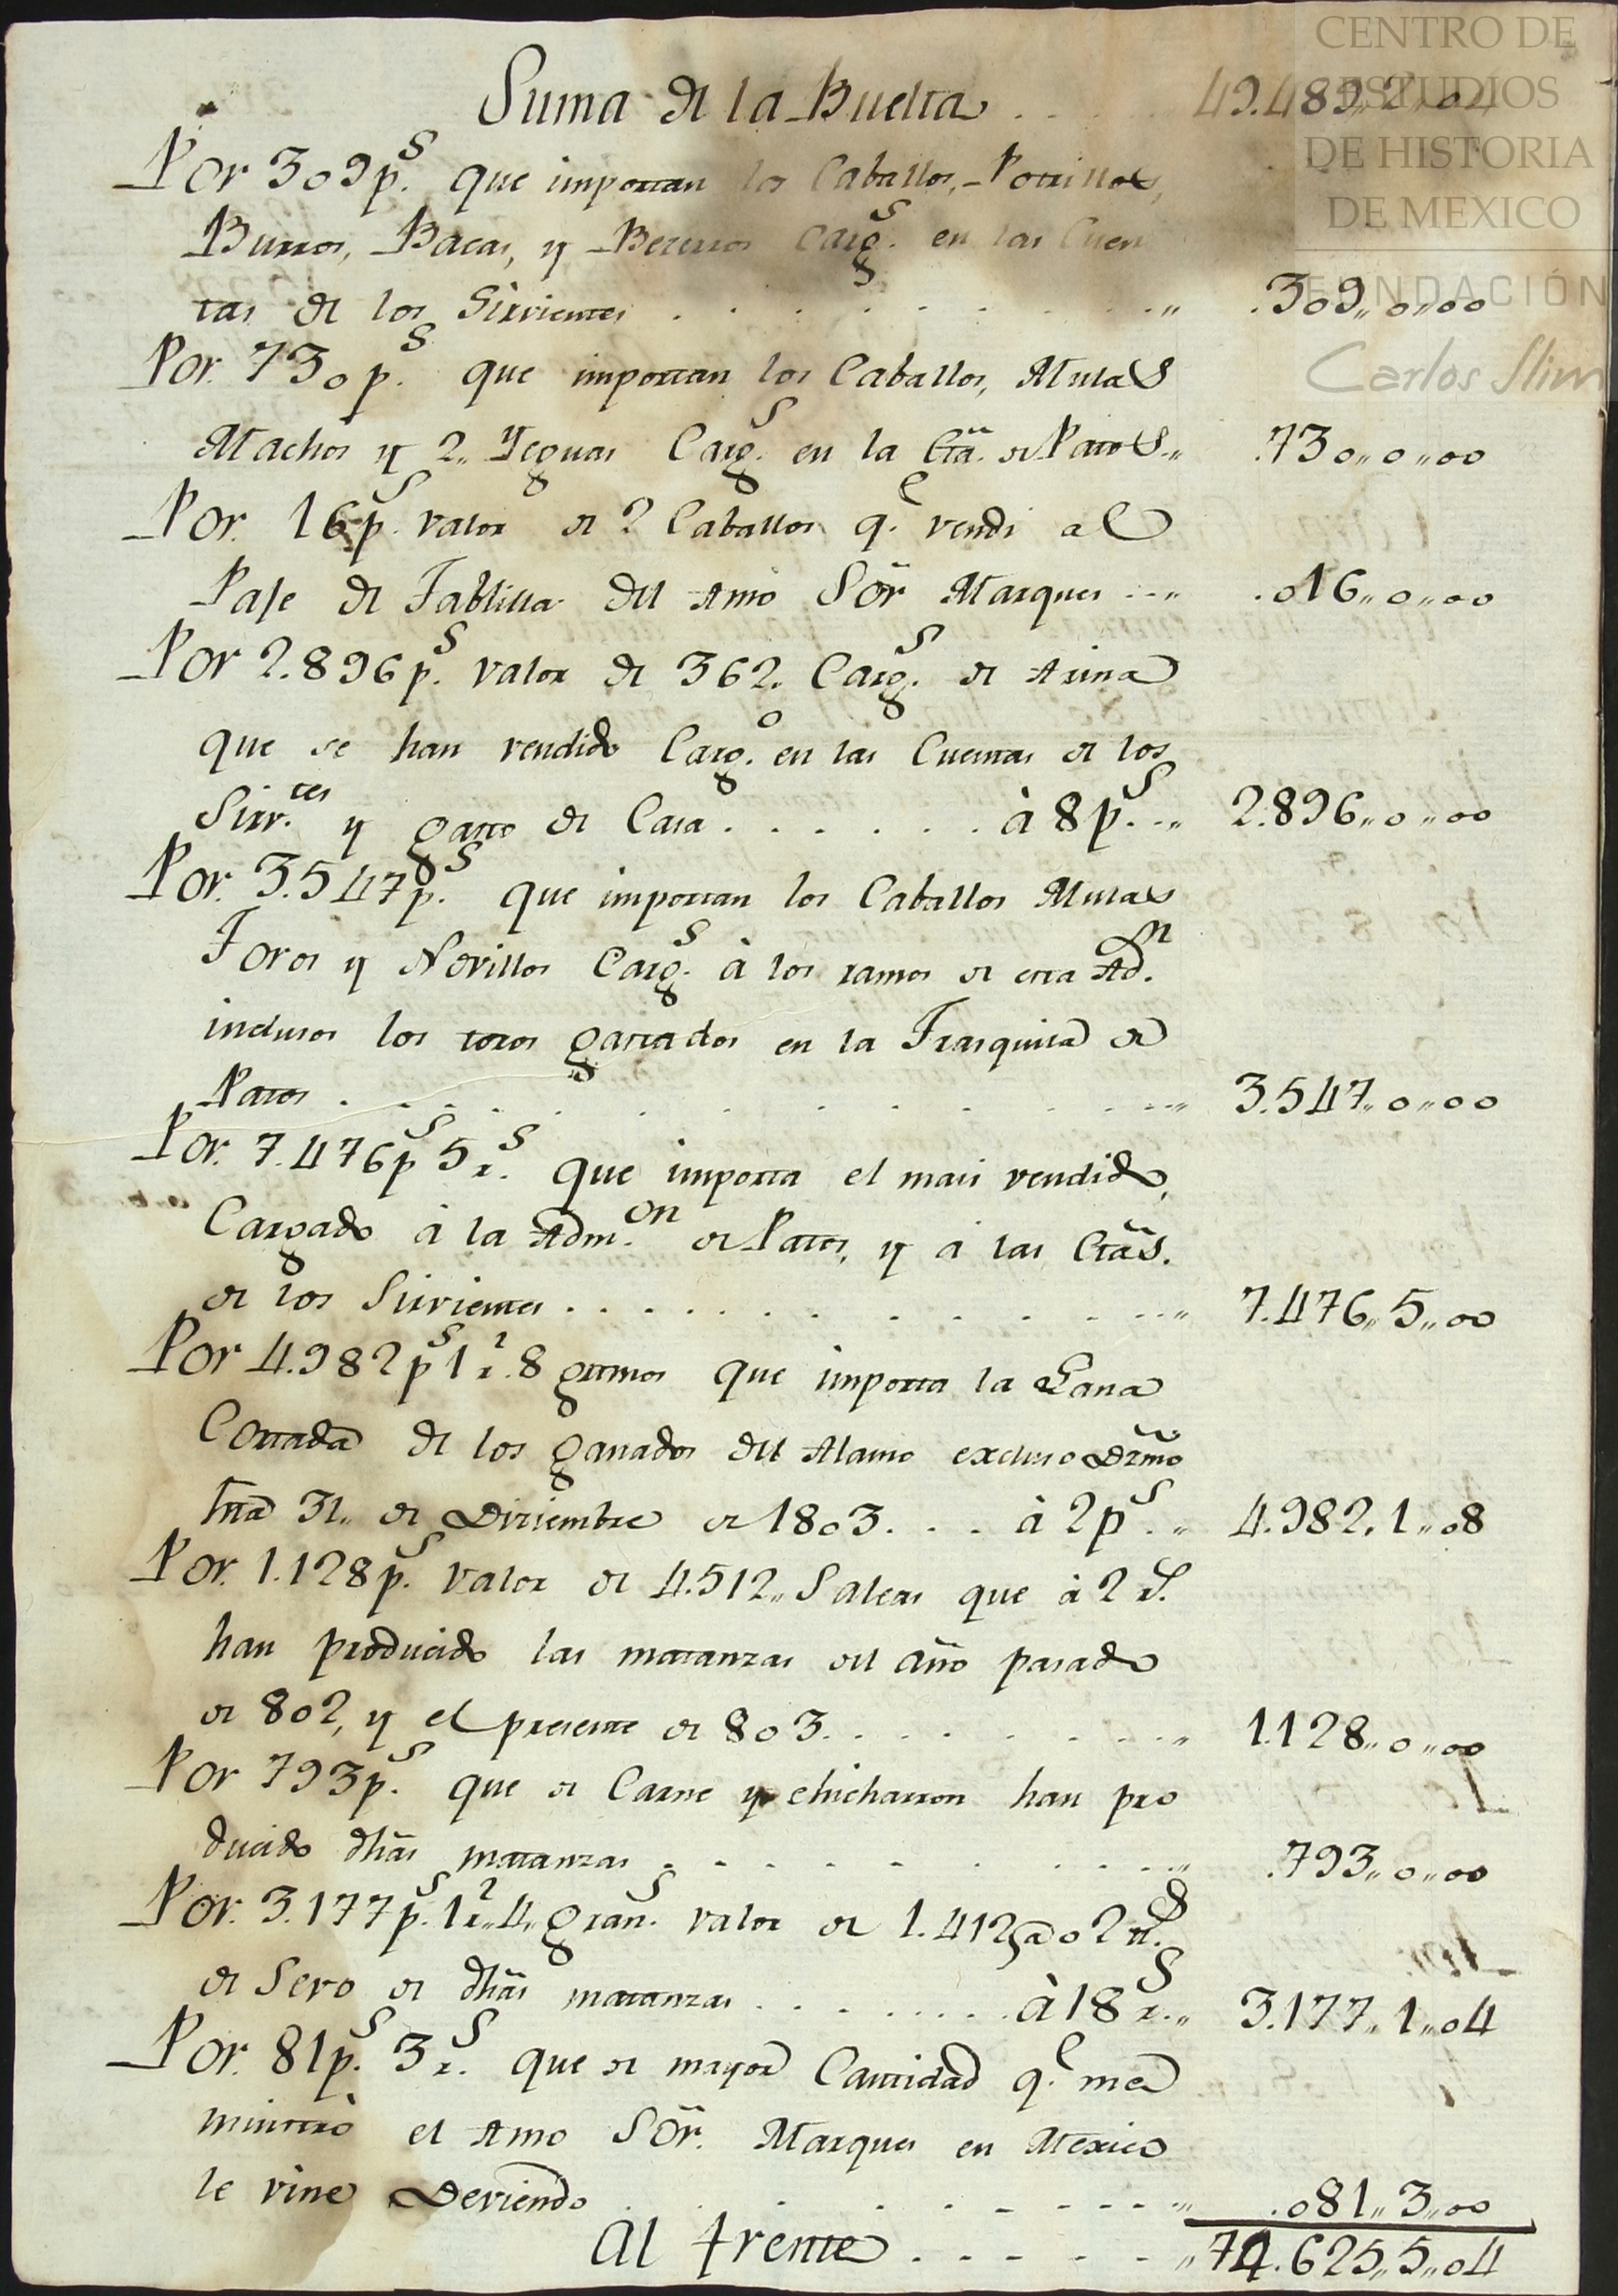 CENTRO DE
ESTUDIOS
DE HISTORIA
DE MEXICO
FUNDACIÓN
Carlos Slim
Suma de la Buelta . . . . 49.489,,2,,04
Por 309 p.s que importan los Caballos, Potrillos,
Burros, Bacas, y Becerros Carg.s en las Cuen
tas de los Sirvientes . . . . . . . . . ,, .309,,0,,00
Por. 730 p.s que importan los Caballos, Mulas
Machos y 2,, Yeguas Carg.s en la Cta. de Patos ,, .730,,0,,00
Por. 16 p.s valor de 2 Caballos q.e vendi al
Paje de Tablilla del Amo Sor Marques . . ,, .016,,0,,00
Por 2.896 p.s valor de 362. Carg.s de Arina
que se han vendido Carg.o en las Cuentas de los
Sirv.tes y gasto de Casa . . . . . . à 8 p.s . ,, 2.896,,0,,00
Por. 3.547 p.s que importan los Caballos Mulas
Toros y Novillos Carg.s à los ramos de esta Ad.n
inclusos los toros gastados en la Trasquila de
Patos . . . . . . . . . . . . ,, 3.547,,0,,00
Por. 7.476 p.s 5 r.s que importa el mais vendido,
Cargado à la Adm.on de Patos, y à las Ctas.
de los Sirvientes . . . . . . . . . . . ,, 7.476,,5,,00
Por 4.982 p.s 1 r.l 8 gramos que importa la Lana
Cortada de los ganados del Alamo excluso Dzmo
hta 31,, de Diziembre de 1803. . . à 2 p.s . ,, 4.982,1,,08
Por. 1.128 p.s valor de 4.512,, Saleas que à 2 rs.
han producido las matanzas del año pasado
de 802, y el presente de 803. . . . . . . . ,, 1.128,,0,,00
Por 793 p.s que de Carne y chicharron han pro
ducido dhas matanzas . . . . . . . . . ,, .793,,0,,00
Por. 3.177 p.s 1 r.l,,4,, gran.s valor de 1.412 @ 02 lls.
de Sevo de dhas matanzas . . . . . . . à 18 r.s ,, 3.177,,1,,04
Por. 81 p.s 3 r.s que de mayor Cantidad q.e me
ministrò el Amo Sor. Marques en Mexico
le vine Deviendo . . . . . . . . . ,, .081,,3,,00
Al frente . . . . . ,, 74.625,,5,,04